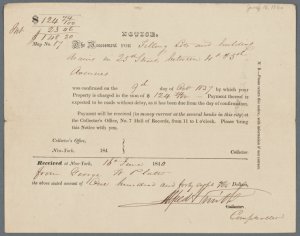 $124 74/100
Int 23 46
$148 20
NOTICE:
Map No. 57
The Assessment for Filling Lots and building
drains in 25th Street between 4th & 5th
Avenues
was confirmed on the 9th day of Oct 1837 by which your
Property is charged in the sum of $124 74/100 Payment thereof is
expected to be made without delay, as it has been due from the day of confirmation.
Payment will be received (in money current at the several banks in this city) at
the Collector's Office, No. 7 Hall of Records, from 11 to 1 o'clock. Please bring
this Notice with you.
Collector's Office,
New-York, 184
Collector.
Received at New-York, 16th June 1840
from George W. Platt
the above stated amount of One hundred and forty eight 20/100 Dollars,
Alfred A. Smith
Collector
Comptroller